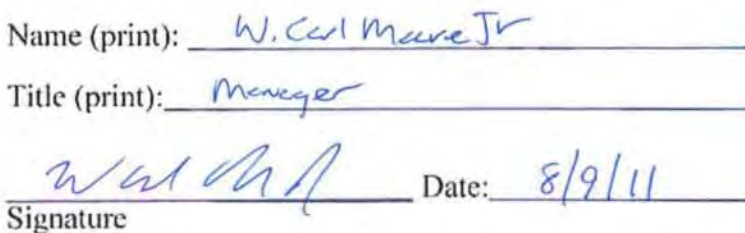 Name (print): W. Carl Moore Jr
Title (print): Manager
Date: 8/9/11
Signature